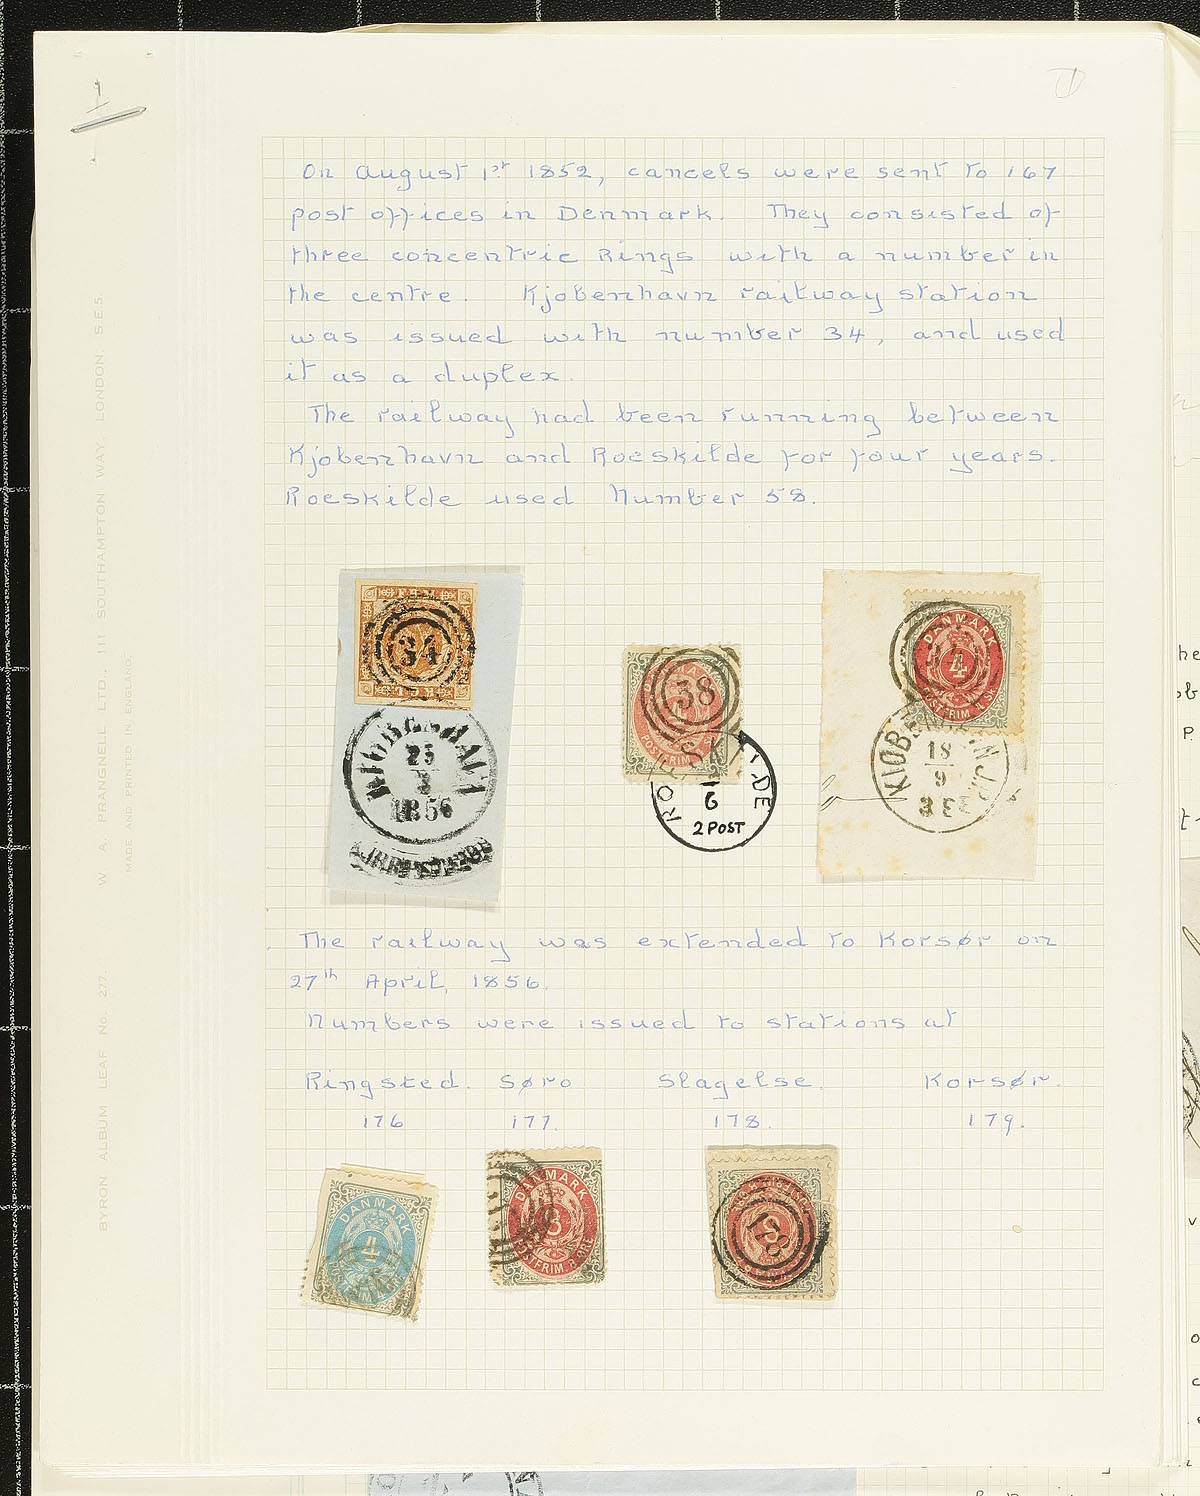 1
1
On August 1st 1852, cancels were sent to 167
post offices in Denmark. They consisted of
three concentric Rings with a number in
the centre. Kjobenhavn railway station
was issued with number 34, and used
it as a duplex.
The railway had been running between
Kjobenhavn and Roeskilde for four years.
Roeskilde used Number 58.
34
25
3
1856
58
ROESKILDE
6
2 POST
DANMARK
4
KIØBENHAVN
18
9
The railway was extended to Korsør on
27th April, 1856.
Numbers were issued to stations at
Ringsted. Søro Slagelse. Korsør.
176 177. 178. 179.
DANMARK
4
DANMARK
8
POSTFRIM 8 ØRE
178
W. A. PRANGNELL LTD., 111 SOUTHAMPTON WAY, LONDON, S.E.5.
BYRON ALBUM LEAF No. 277.
MADE AND PRINTED IN ENGLAND.